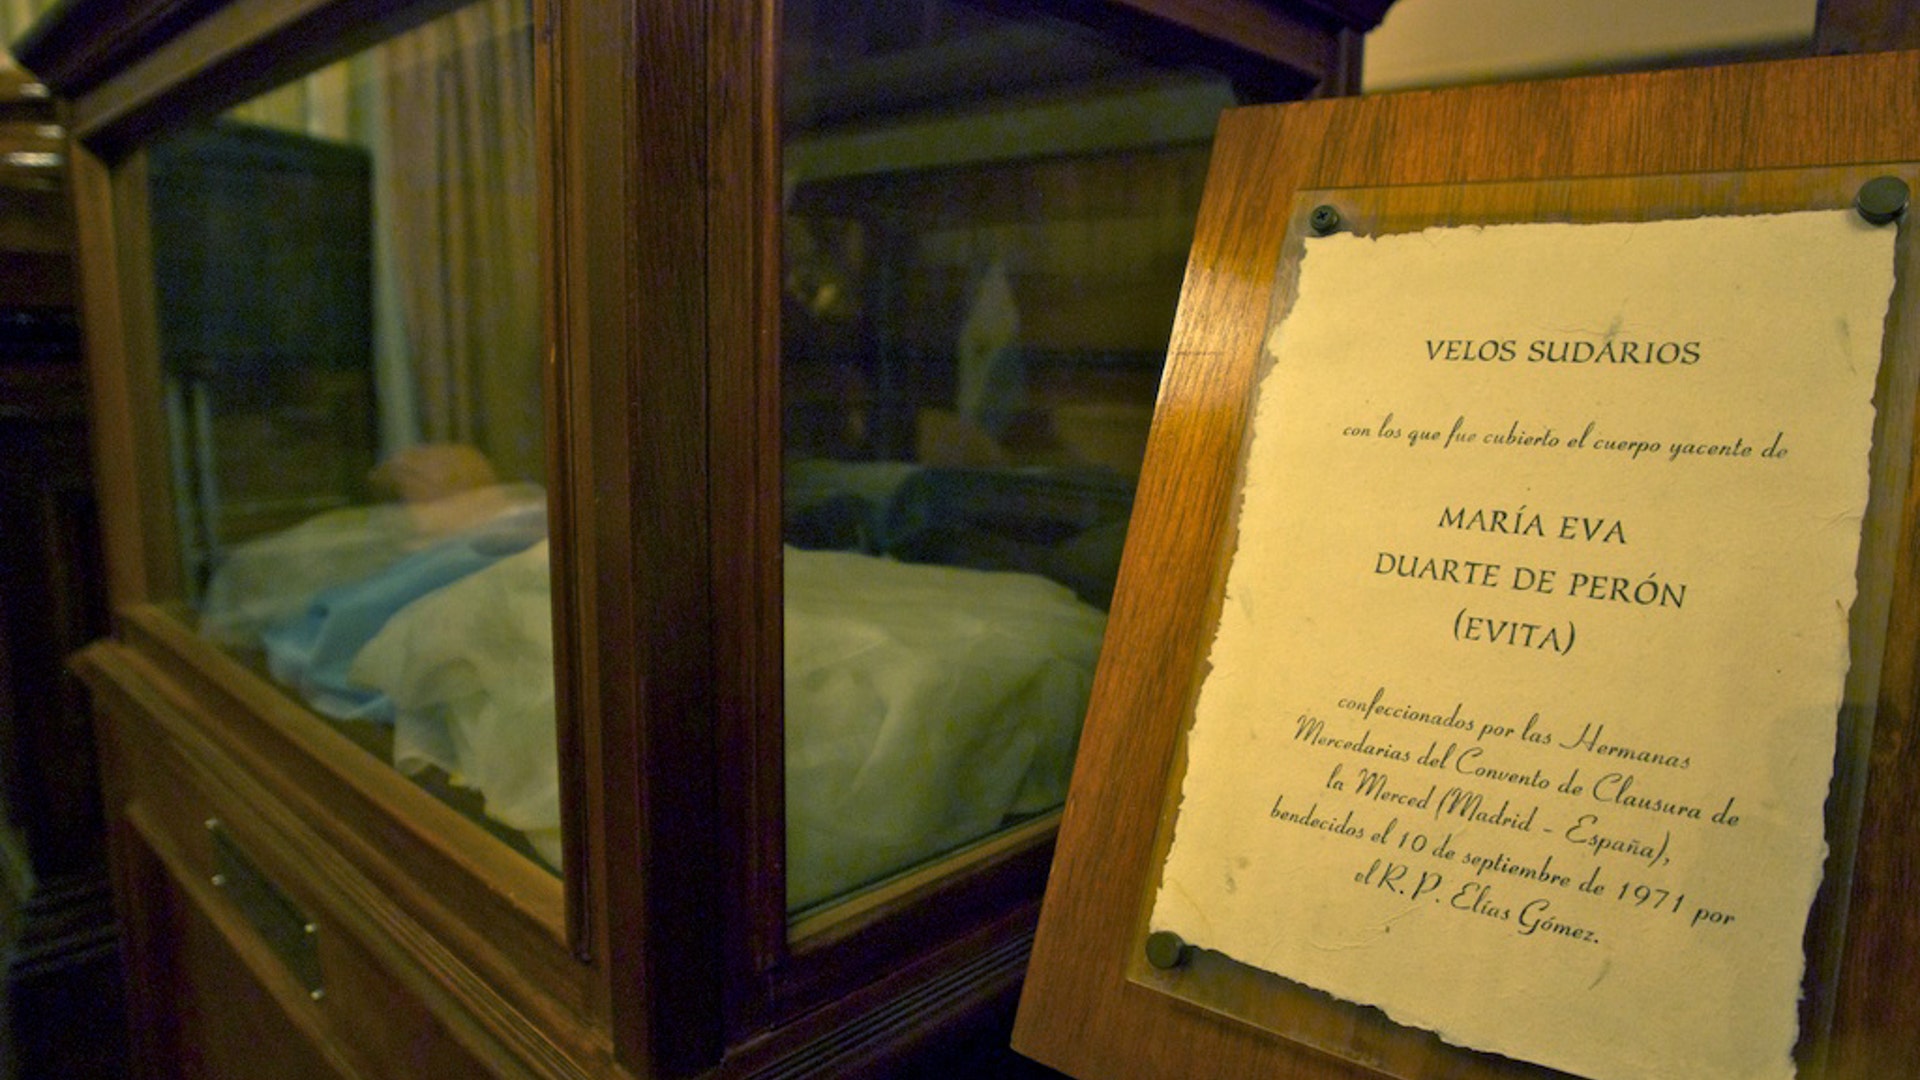 VELOS SUDARIOS
con los que fue cubierto el cuerpo yacente de
MARÍA EVA
DUARTE DE PERÓN
(EVITA)
confeccionados por las Hermanas
Mercedarias del Convento de Clausura de
la Merced (Madrid - España),
bendecidos el 10 de septiembre de 1971 por
el R. P. Elías Gómez.